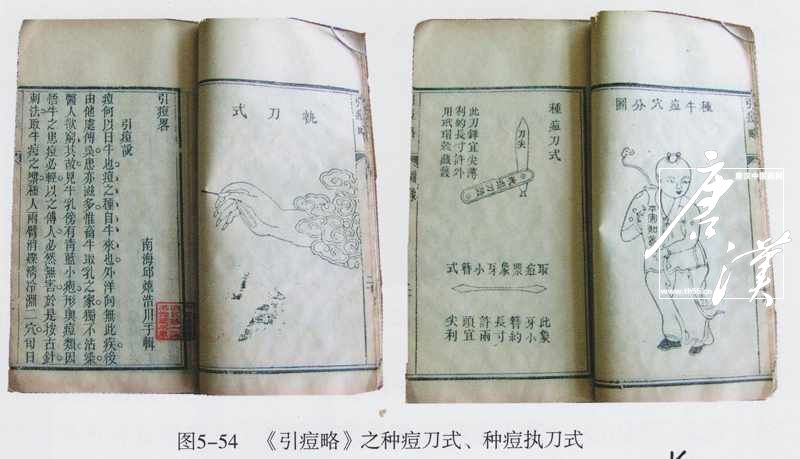 引痘略
執刀式
引痘畧
引痘說
南海邱熺浩川于輯
痘何以曰牛也痘之種自牛來也外洋向無此疾後
由他處傳染患亦滋多惟畜牛取乳之家獨不沾染
醫人欲窮其故見牛乳傍有青藍小疱形與痘類因
悟牛之患痘必輕以之傳人必然無害於是按古針
刺法取牛痘之漿種人兩臂消爍清冷淵二穴旬日
引痘略
種牛痘穴分圖
種痘刀式
刀尖
此刀鋒宜尖薄
利約長寸許外
用玳瑁殼
取痘漿象牙小簪式
此象
牙小
簪約
長寸
許兩
頭宜
尖利
唐汉
唐汉中医药网
www.th55.cn
图5-54 《引痘略》之种痘刀式、种痘执刀式